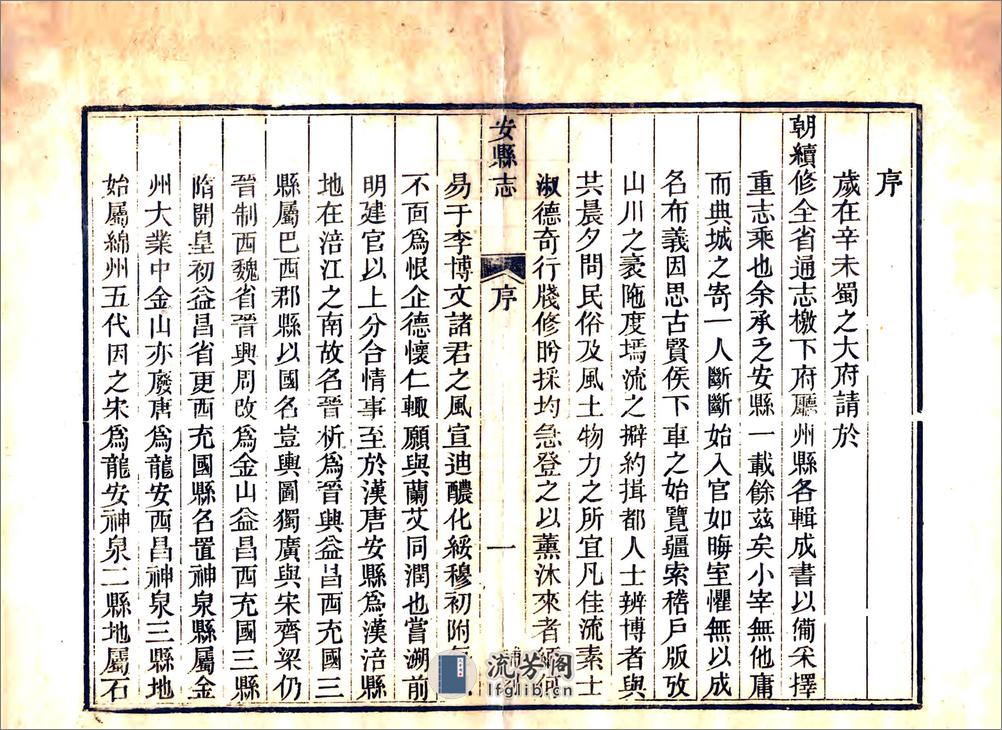 序
歲在辛未蜀之大府請於
朝續修全省通志檄下府廳州縣各輯成書以備采擇
重志乘也余承乏安縣一載餘茲矣小宰無他庸
而典城之寄一人斷斷始入官如晦室懼無以成
名布義因思古賢侯下車之始覽疆索稽戶版攷
山川之裹阤度墕流之擗約揖都人士辨博者與
共晨夕問民俗及風土物力之所宜凡佳流素士
淑德奇行牋修昑採均急登之以薰沐來者
安縣志
序
一
補刻
流芳阁
lfglib.cn
易于李博文諸君之風宣迪醲化綏穆初附
不面爲恨企德懷仁輙願與蘭艾同潤也嘗溯前
明建官以上分合情事至於漢唐安縣爲漢涪縣
地在涪江之南故名晉析爲晉興益昌西充國三
縣屬巴西郡縣以國名豈輿圖獨廣與宋齊梁仍
晉制西魏省晉興周改爲金山益昌西充國三縣
隋開皇初益昌省更西充國縣名置神泉縣屬金
州大業中金山亦廢唐爲龍安西昌神泉三縣地
始屬綿州五代因之宋爲龍安神泉二縣地屬石